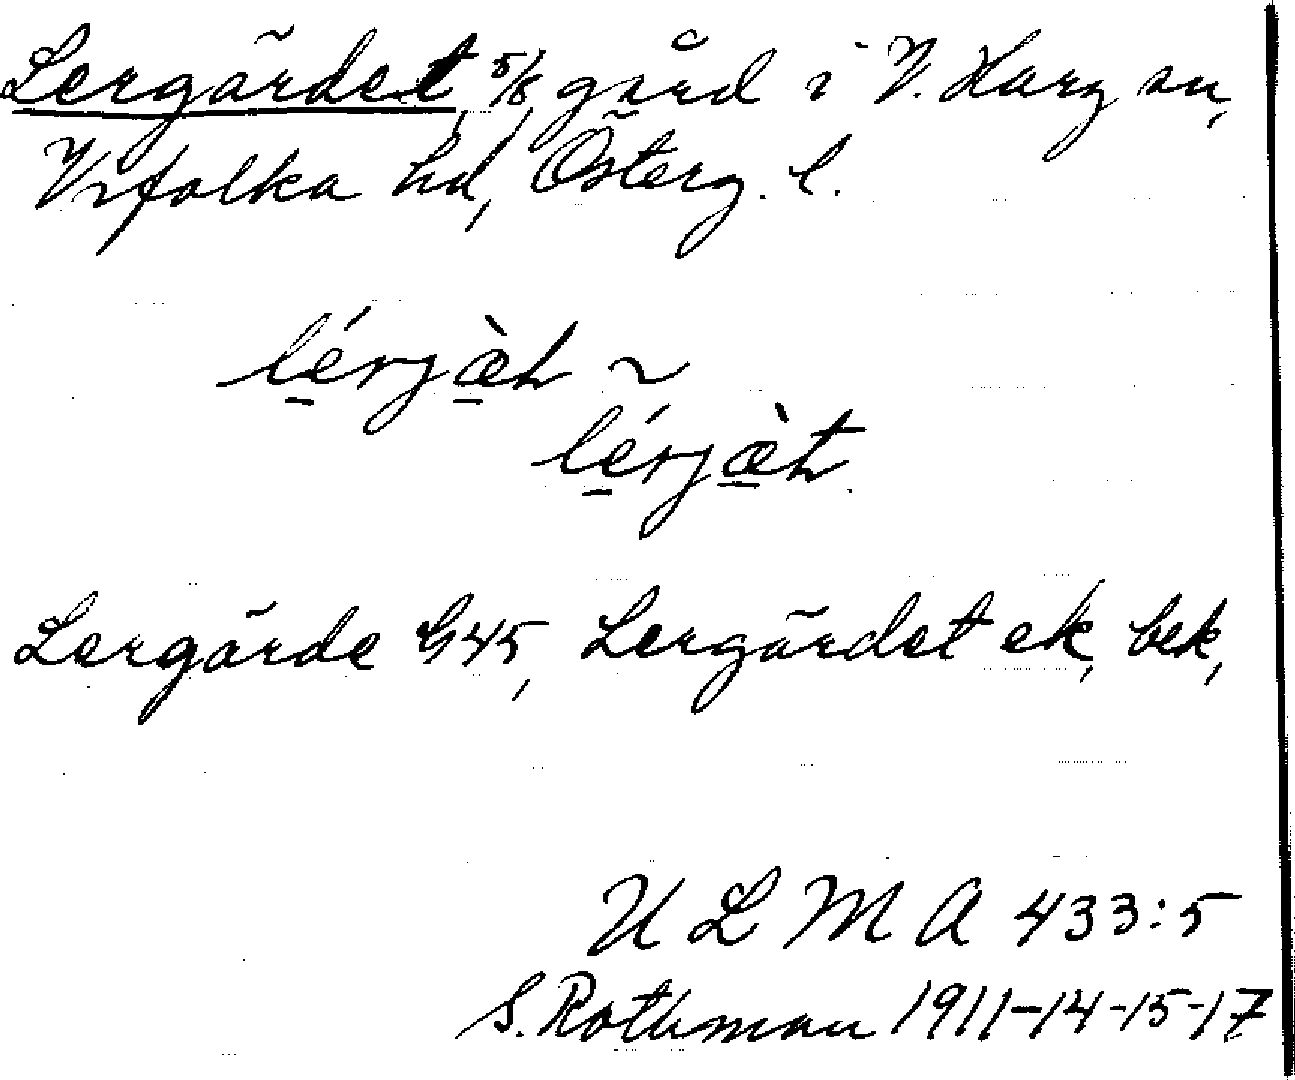 Lergärdet, 5/8 gård i V. Harg sn,
Vifolka hd, Österg. l.
lérjæ̀t ~
lérjæ̀t.
Lergärde G45, Lergärdet ek, bek,
ULMA 433:5
S. Rothman 1911-14-15-17